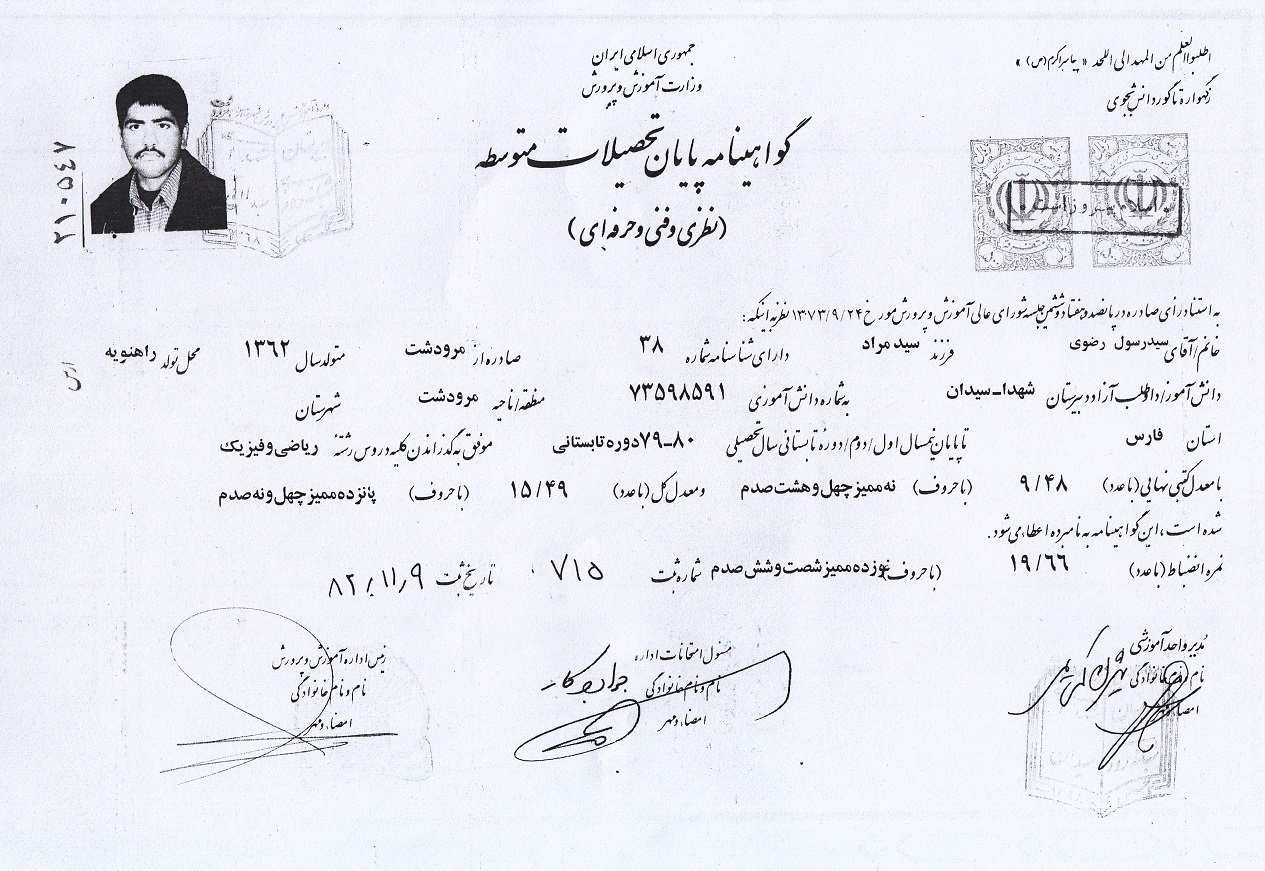 جمهوری اسلامی ایران
وزارت آموزش و پرورش
اطلبوا العلم من المهد الی اللحد « پیامبر اکرم (ص) »
زگهواره تا گور دانش بجوی
گواهینامه پایان تحصیلات متوسطه
(نظری و فنی و حرفه ای)
۲۱۰۵۴۷
به استناد رأی صادره در پانصد و هفتاد و ششمین جلسه شورای عالی آموزش و پرورش مورخ ۱۳۷۳/۹/۲۴ نظر به اینکه:
خانم/آقای سید رسول رضوی فرزند سید مراد دارای شناسنامه شماره ۳۸ صادره از مرودشت متولد سال ۱۳۶۲ محل تولد راهنویه
دانش آموز/داوطلب آزاد دبیرستان شهدا-سیدان به شماره دانش آموزی ۷۳۵۹۸۵۹۱ منطقه/ناحیه مرودشت شهرستان
استان فارس تا پایان نیمسال اول/دوم/دوره تابستانی سال تحصیلی ۸۰-۷۹ دوره تابستانی موفق به گذراندن کلیه دروس رشته ریاضی و فیزیک
با معدل کتبی نهایی (با عدد) ۹/۴۸ (با حروف) نه ممیز چهل و هشت صدم و معدل کل (با عدد) ۱۵/۴۹ (با حروف) پانزده ممیز چهل و نه صدم
شده است، این گواهینامه به نامبرده اعطا می شود.
نمره انضباط (با عدد) ۱۹/۶۶ (با حروف) نوزده ممیز شصت و شش صدم شماره ثبت ۷۱۵ تاریخ ثبت ۸۲/۱۱/۹
مدیر واحد آموزشی
نام و نام خانوادگی
امضاء
مسئول امتحانات اداره
نام و نام خانوادگی
امضاء و مهر
رئیس اداره آموزش و پرورش
نام و نام خانوادگی
امضاء و مهر